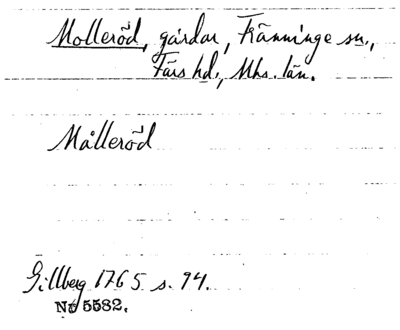 Molleröd, gårdar, Fränninge sn.,
Färs hd., Mhs. län.
Målleröd
Gillberg 1765 s. 94.
No 5582.